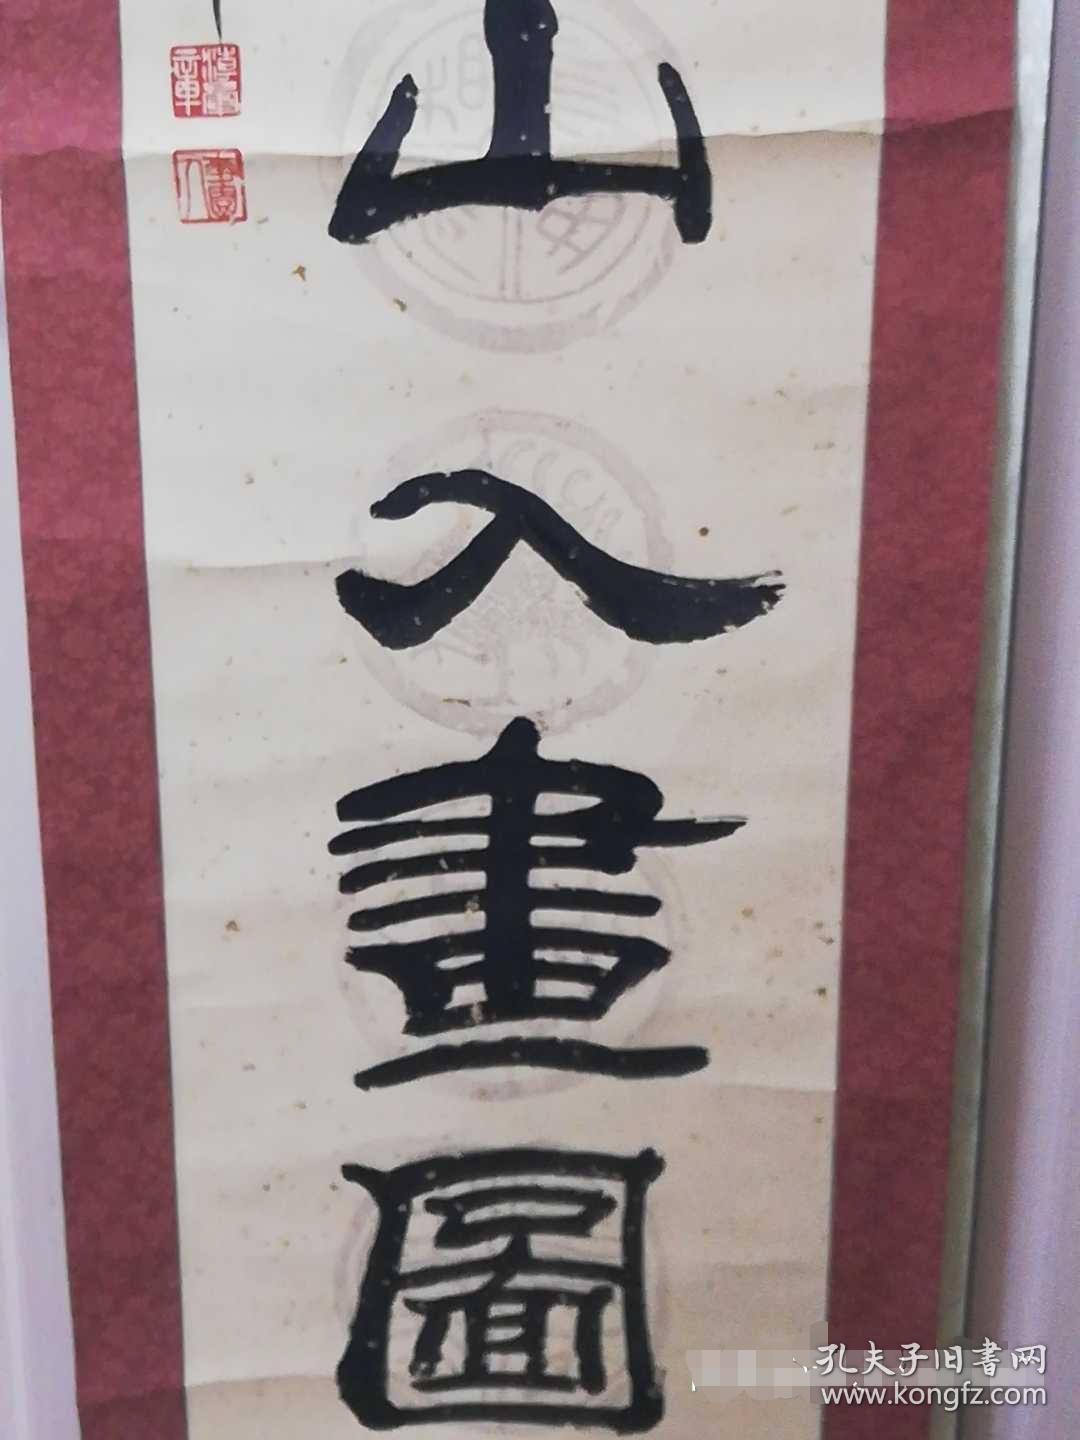 山入畫圖
孔夫子旧書网
www.kongfz.com